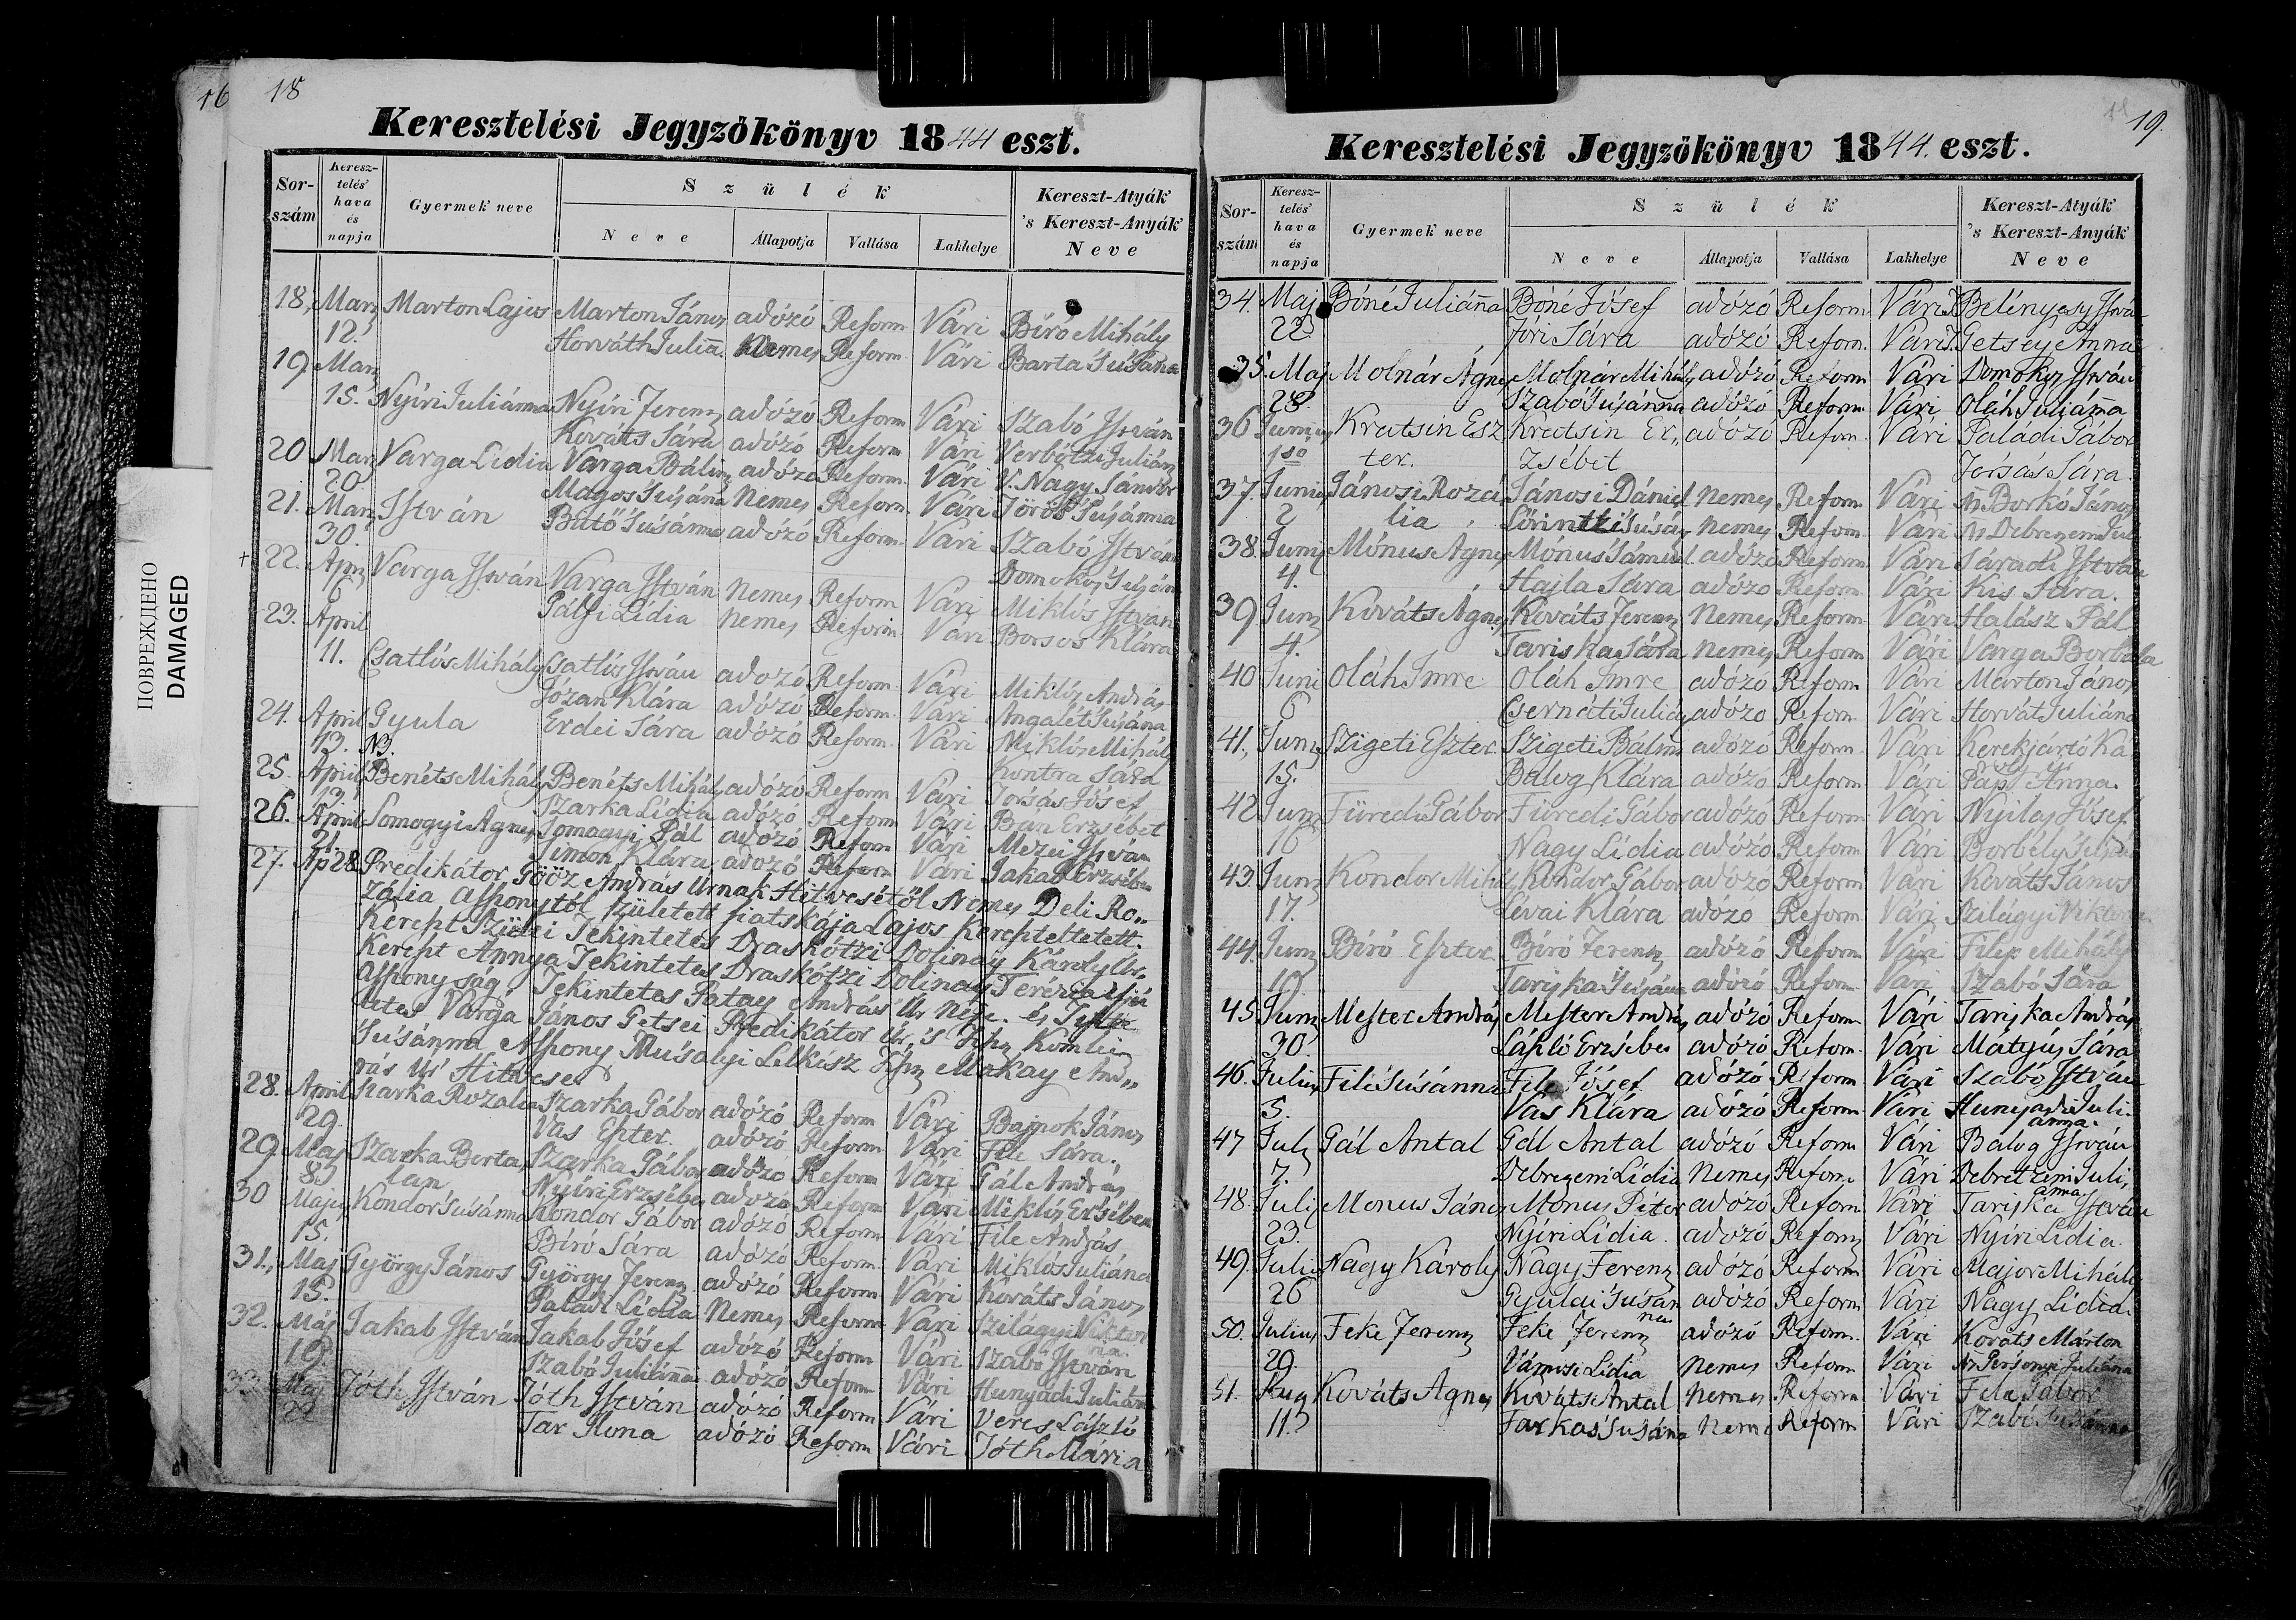 16 18
Keresztelési Jegyzökönyv 1844 eszt.
Sor-szám Keresz-telés' hava és napja Gyermek neve Szülék Neve Állapotja Vallása Lakhelye Kereszt-Atyák 's Kereszt-Anyák Neve
18. Marz Marton Lajos Marton János adózó Reform Vári Bíró Mihály
12. Horváth Juliãna Nemes Reform Vári Barta Su'sána
19. Marz
15. Nyíri Juliánna Nyíri Ferenz adózó Reform Vári Szabó Istvan
Kováts Sára adózó Reform Vári Verbőtzi Julián
20 Marz Varga Lidia Varga Bálint adózó Reform Vári V. Nagy Sándor
20 Magos Su'sána Nemes Reform Vári Török Su'sánna
21. Marz István Butő Su'sánna adózó Reform Vári Szabó István
30. Domokos Su'sána
+ 22. April Varga István Varga István Nemes Reform Vári Miklós István
6 Pálfi Lídia Nemes Reform Vári Borsos Klára
23. April
11. Csatlós Mihály Csatlós István adozó Reform Vári Miklós András
Józan Klára adózó Reform Vári Angalét Su'sána
24. April Gyula Erdei Sára adózó Reform Vári Miklós Mihály
13. N3. Kontra Sára
25. April Benéts Mihály Benéts Mihály adózó Reform Vári Jorsás Jósef
13. Szarka Lídia adózó Reform Vári Ban Erzsébet
26. April Somogyi Agnes Somogyi Pál adózó Reform Vári Mezei István
21. Simon Klára adózó Reform Vári Jakab Erzsébet
27. Ap 28 Predikátor Gööz András Urnak Hitvesétől Nemes Deli Ro„
zália Asszonytól született fiatskája Lajos Kereszteltetett.
Kereszt Szülei Tekintetes Draskótzi Dolinay Károly Ur.
Kereszt Annya Tekintetes Draskótzi Dolinay Terézia ifjú
Asszonyság Tekintetes Patay András Ur Néje. és Tiszte
letes Varga János Getsei Predikátor Úr, 's Tisz Komlei
Su'sánna Asszony Mu'salyi Lelkész Tisz Makay And„
rás Úr Hitvese
28. April Szarka Rozalia Szarka Gábor adózó Reform Vári Bajnok János
29. Vas Eszter. adózó Reform Vári File Sára.
29. Maj Szarka Berta Szarka Gábor adózó Reform Vári Gál András
8. lan Nyíri Erzsébet adózó Reform Vári Miklós Ersébet
30 Majus Kondor Su'sánna Kondor Gábor adózó Reform Vári File András
15. Bíró Sára adózó Reform Vári Miklós Juliána
31. Maj György János György Ferenz adózó Reform Vári Kováts János
15. Paládi Lídia Nemes Reform Vári Szilágyi Viktoria
32. Máj Jakab István Jakab Jósef adózó Reform Vári Szabó István
19. Szabó Juliánna adózó Reform Vári Hunyadi Julián
33. Maj Tóth István Tóth István adózó Reform Vári Veres László
22 Tar Ilona adózó Reform Vári Tóth Mária
19.
Keresztelési Jegyzökönyv 1844. eszt.
Sor-szám Keresz-telés' hava és napja Gyermek neve Szülék Neve Állapotja Vallása Lakhelye Kereszt-Atyák 's Kereszt-Anyák Neve
34. Maj Bóné Juliãna Bóné Jósef adózó Reform Vári Belényesy Istvá
22 Jóri Sára adózó Reform. Vári Getsey Anna
35. Maj Molnár Ágnes Molnár Mihály adózó Reform Vári Domokos István
28. Szabó Su'sánna adózó Reform Vári Oláh Juliãna
36 Junius Kratsin Esz Kratsin Er„ adózó Reform Vári Paládi Gábor
1ső ter. zsébet Jorsás Sára.
37. Junius Jánosi Rozá Jánosi Dániel Nemes Reform Vári N. Borkó János
2 lia Lőrintzi Su'sán Nemes Reform Vári Ns Debrezeni Juli
38. Junij Mónus Agnes Mónus Sámuel adózó Reform Vári Sáradi István
4. Hajla Sára adózó Reform Vári Kis Sára.
39 Junj Kováts Ágnes Kováts Ferenz Nemes Reform Vári Halász Pál
4. Tariska Sára Nemes Reform Vári Varga Borbála
40 Juni Oláh Imre Oláh Imre adózó Reform Vári Márton János
6 Csernáti Juliá adózó Reform Vári Horvát Juliána
41. Junj Szigeti Eszter Szigeti Bálint adózó Reform Vári Kerekjartó Ka
15. Balog Klára adózó Reform Vári Pap Anna. roly
42 Junj Füredi Gábor Füredi Gábor adózó Reform Vári Nyilas Jósef
16 Nagy Lídia adózó Reform Vári Borbély Su'sána
43. Junj Kondor Mihály Kondor Gábor adózó Reform Vári Kováts János
17. Lévai Klára adózó Reform Vári Szilágyi Viktoria
44. Junj Bíró Eszter Bíró Ferenz adózó Reform Vári Filep Mihály
19 Tariska Su'sána adózó Reform Vári Szabó Sára
45 Junj Mester András Mester András adózó Reform Vári Tariska András
30. László Erzsébet adózó Reform Vári Mátyús Sára
46. Julius File Su'sánna File Jósef adózó Reform Vári Szabó István
5. Vas Klára adózó Reform Vári Hunyadi Juli
ánna.
47 July Gál Antal Gál Antal adózó Reform Vári Balog István
7. Debrezeni Lídia Nemes Reform. Vári Debretzeni Juli,
ánna.
48. Julij Monus János Monus Péter adózó Reform Vári Tariska István
23. Nyíri Lidia adózó Reform Vári Nyíri Lídia.
49. Julius Nagy Károly Nagy Ferenz adózó Reform Vári Major Mihály
26 Gyulai Su'sán adózó Reform Vári Nagy Lídia.
na
50. Julius Feke Ferenz Feke Ferenz adózó Reform. Vári Kováts Márton
29. Vámosi Lidia Nemes Reform Vári Ns Persenyi Juliána
51. Aug Kováts Agnes Kováts Antal Nemes Reform Vári File Gábor
11. Farkas Su'sána Nemes Reform Vári Szabó Su'sánna
ПОВРЕЖДЕНО
DAMAGED